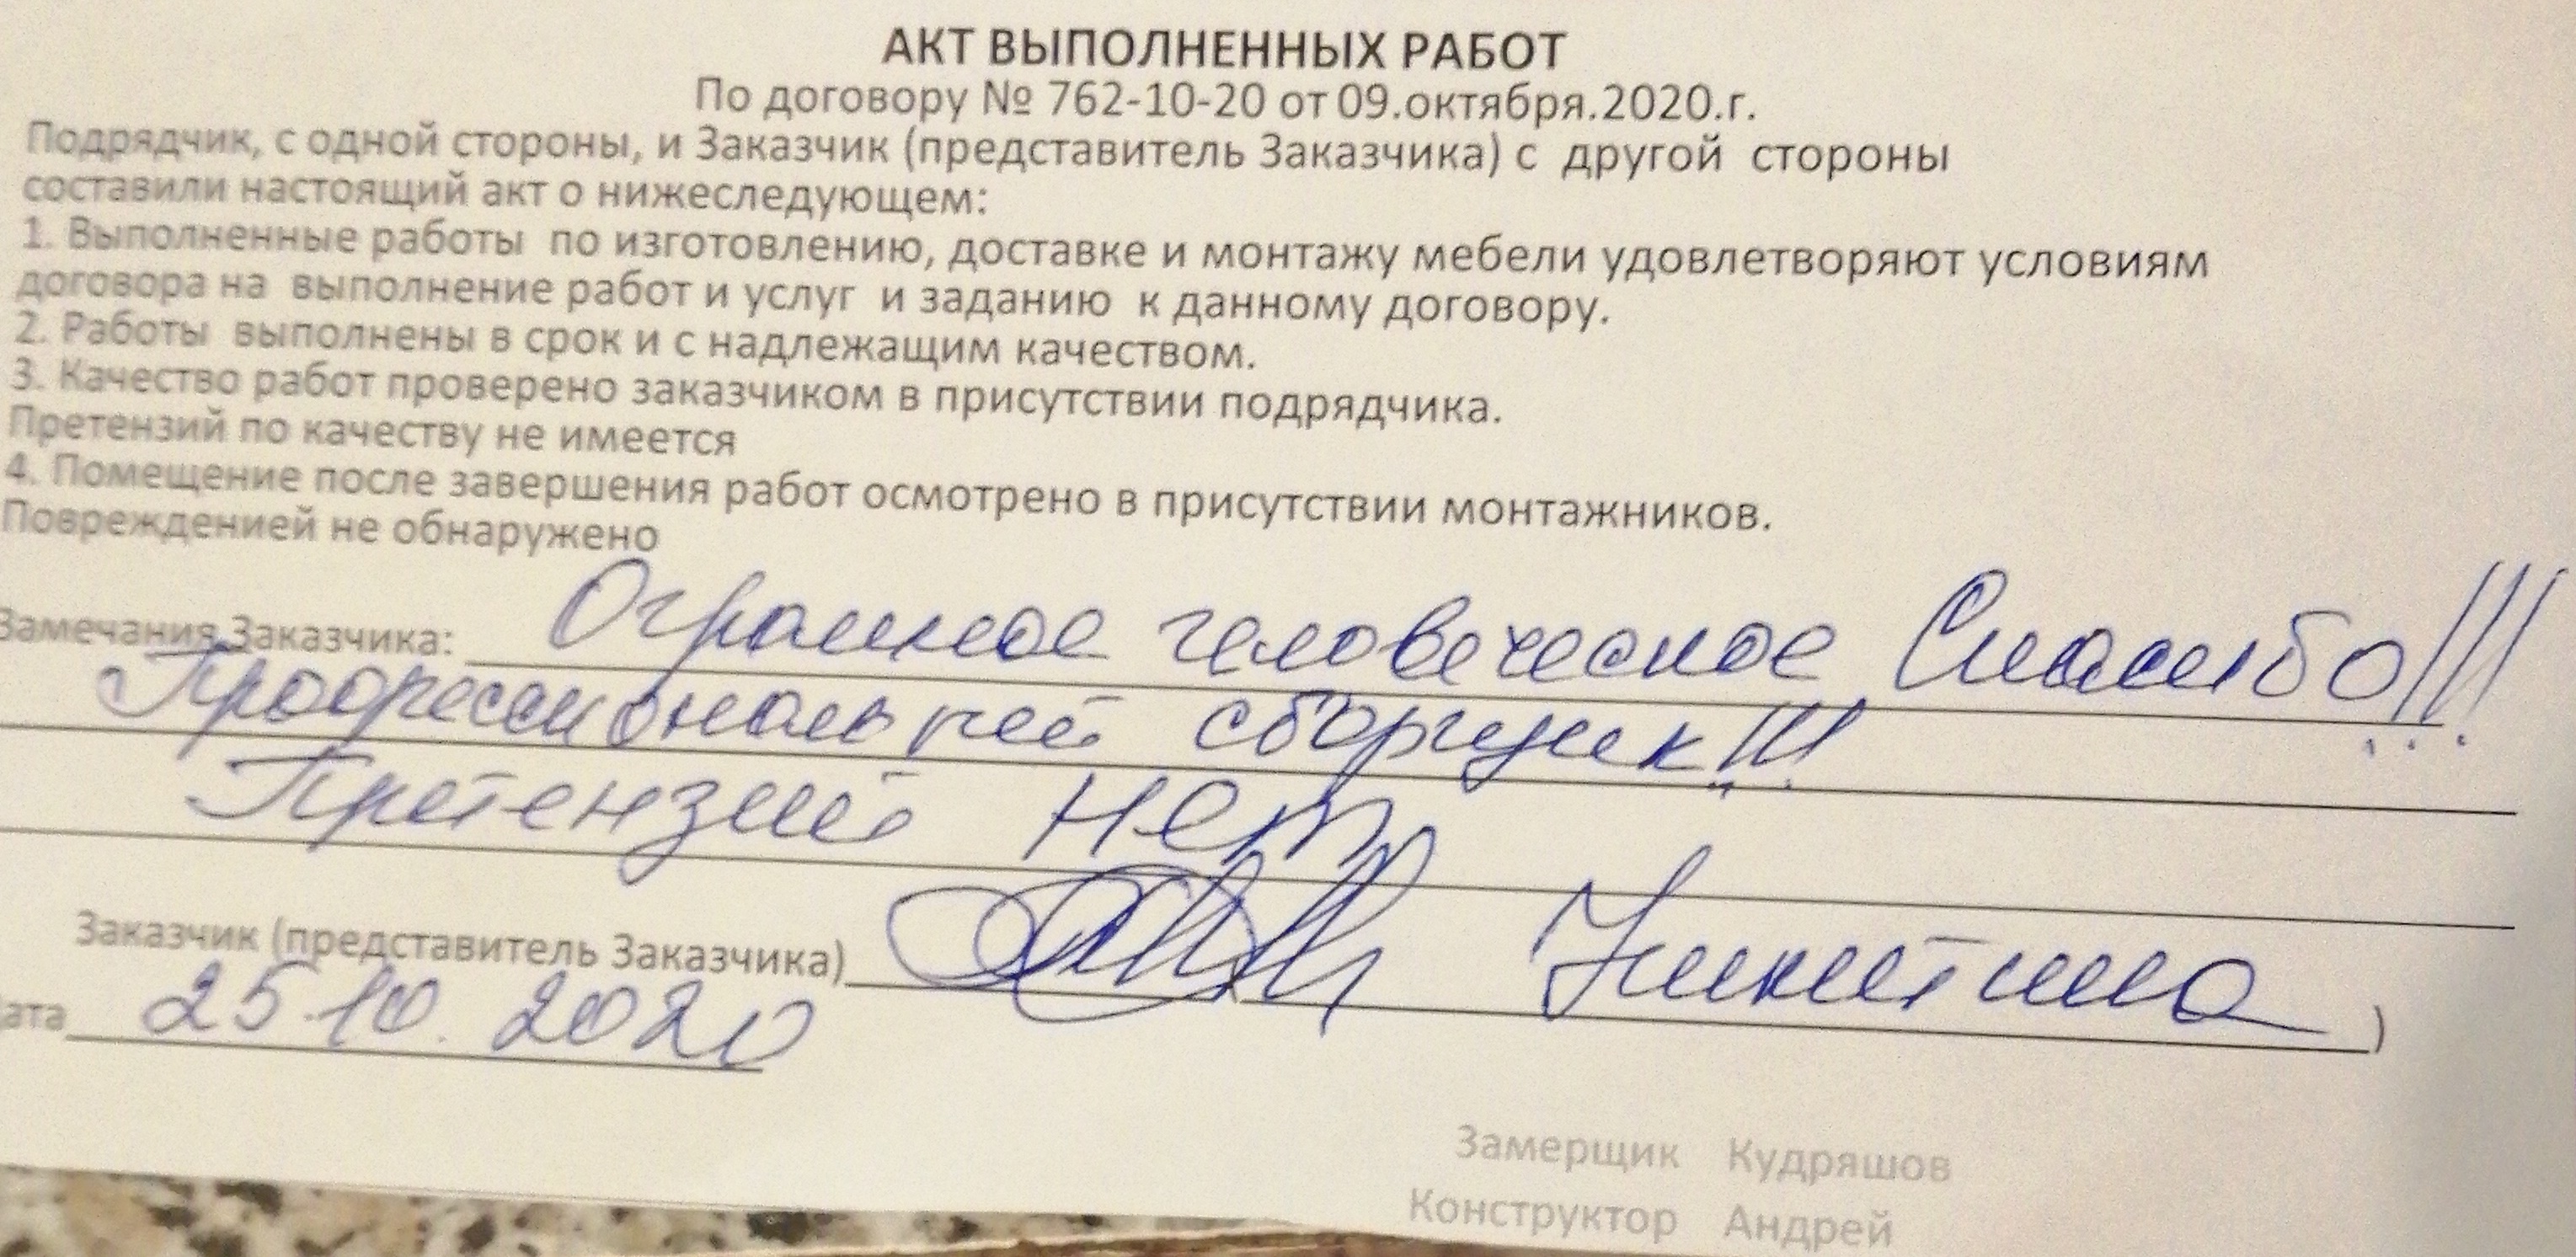 АКТ ВЫПОЛНЕННЫХ РАБОТ
По договору № 762-10-20 от 09.октября.2020.г.
Подрядчик, с одной стороны, и Заказчик (представитель Заказчика) с другой стороны
составили настоящий акт о нижеследующем:
1. Выполненные работы по изготовлению, доставке и монтажу мебели удовлетворяют условиям
договора на выполнение работ и услуг и заданию к данному договору.
2. Работы выполнены в срок и с надлежащим качеством.
3. Качество работ проверено заказчиком в присутствии подрядчика.
Претензий по качеству не имеется
4. Помещение после завершения работ осмотрено в присутствии монтажников.
Поврежденией не обнаружено
Замечания Заказчика: Огромное человеческое Спасибо!!!
Профессиональный сборщик!!!
Претензий нет
Заказчик (представитель Заказчика) Никитина )
Дата 25.10.2020
Замерщик Кудряшов
Конструктор Андрей